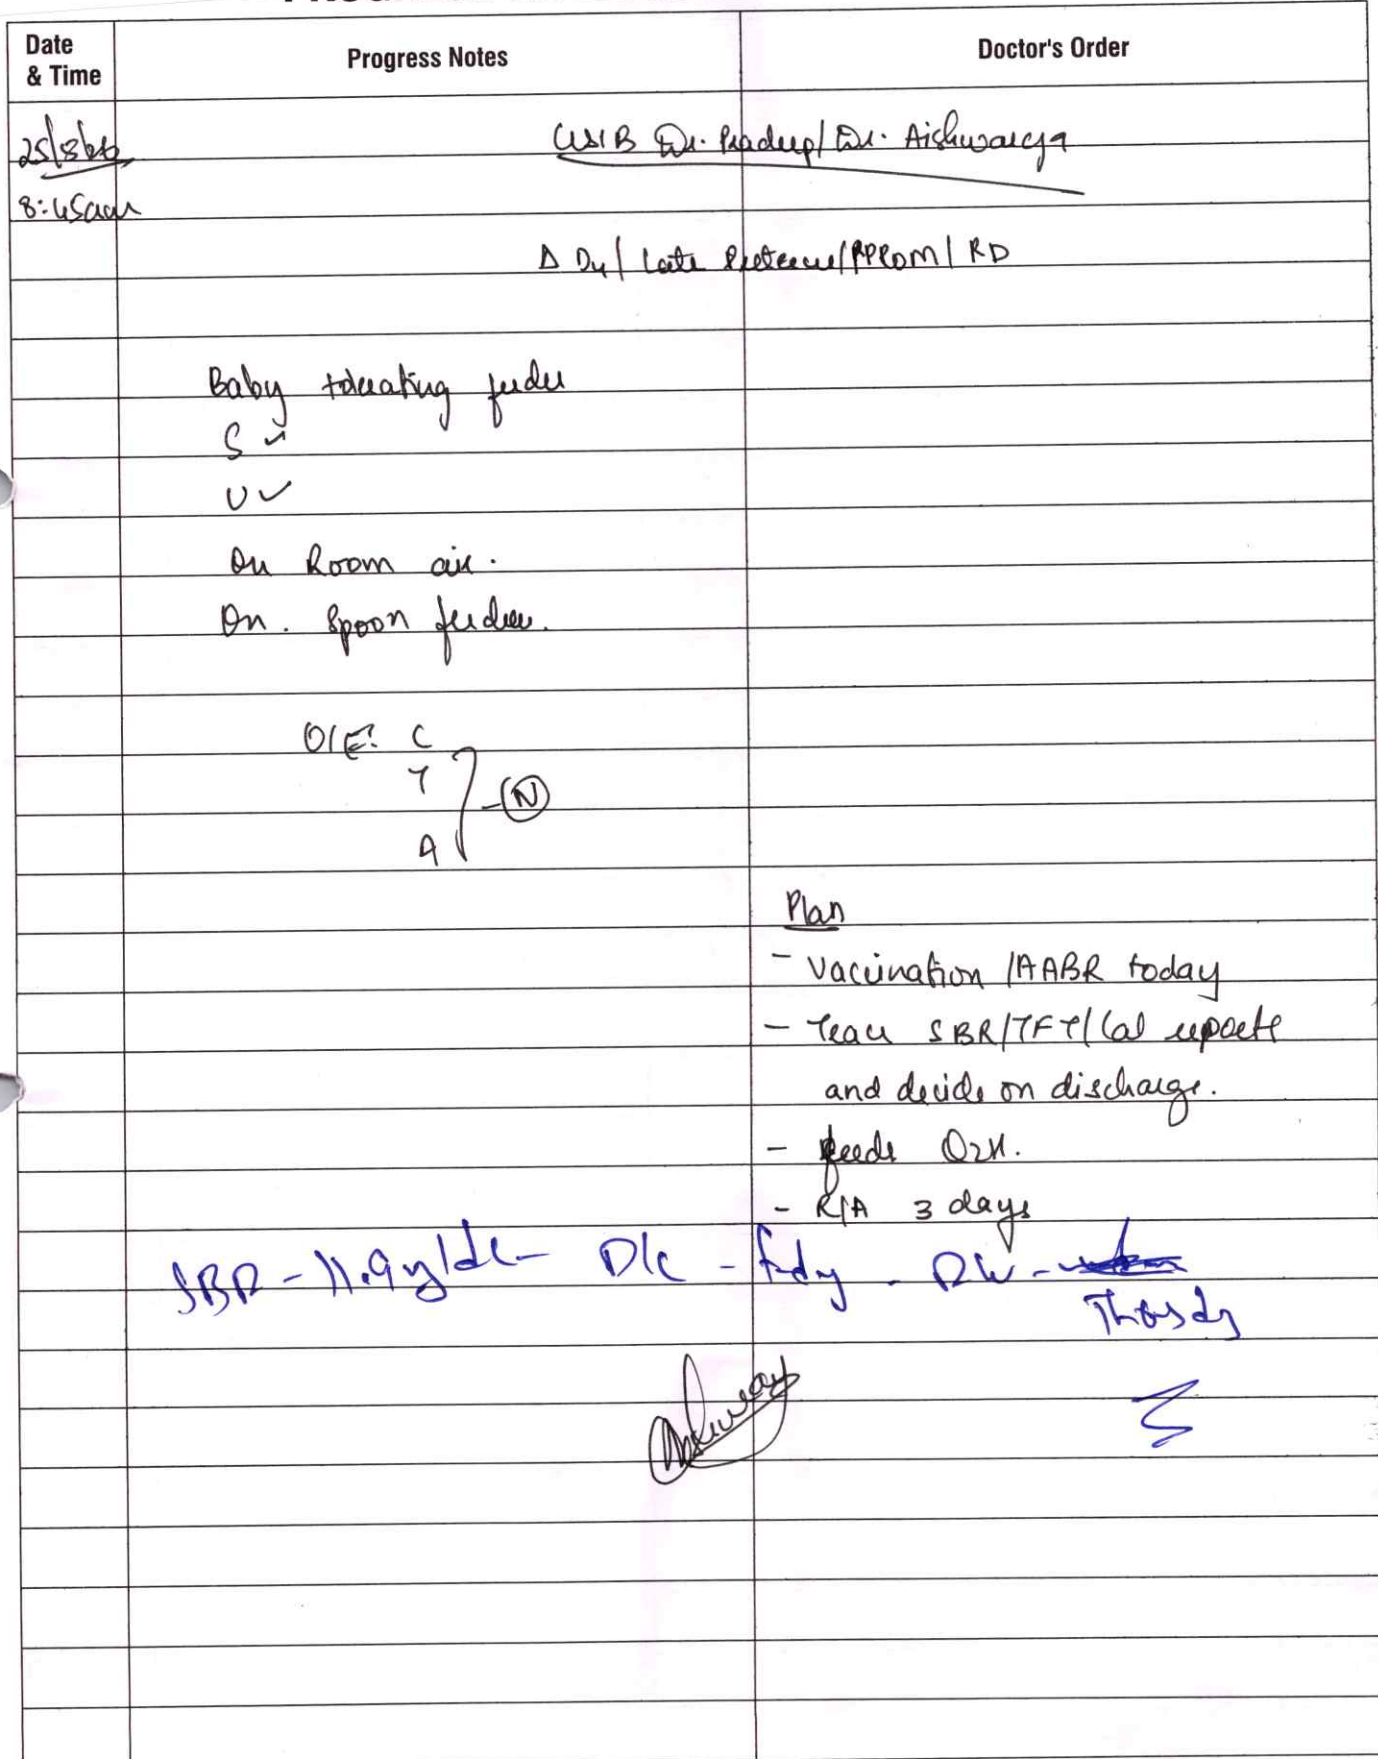 Date
& Time
Progress Notes
Doctor's Order
C/S/B Dr. Pradeep/ Dr. Aishwarya
8:45am
Δ D4/ Late Preterm/PPROM/ RD
Baby tolerating feeds
S ✓
U ✓
On Room air.
On. Spoon feeds.
O/E: C
A
- (N)
Plan
- Vaccination /AABR today
- Trace SBR/TFT/Cal reports
and decide on discharge.
- feeds Q2H.
- R/A 3 days
SBR - 11.9 g/dl - D/c - - RW -
Thursdy